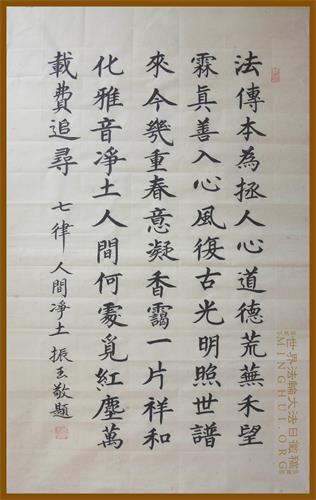 法傳本為拯人心道德荒蕪禾望
霖眞善入心風復古光明照世譜
來今幾重春意凝香靄一片祥和
化雅音凈土人間何處覓紅塵萬
載費追尋
七律 人間凈土 振玉敬題
世界法輪大法日徵稿
MINGHUI.ORG